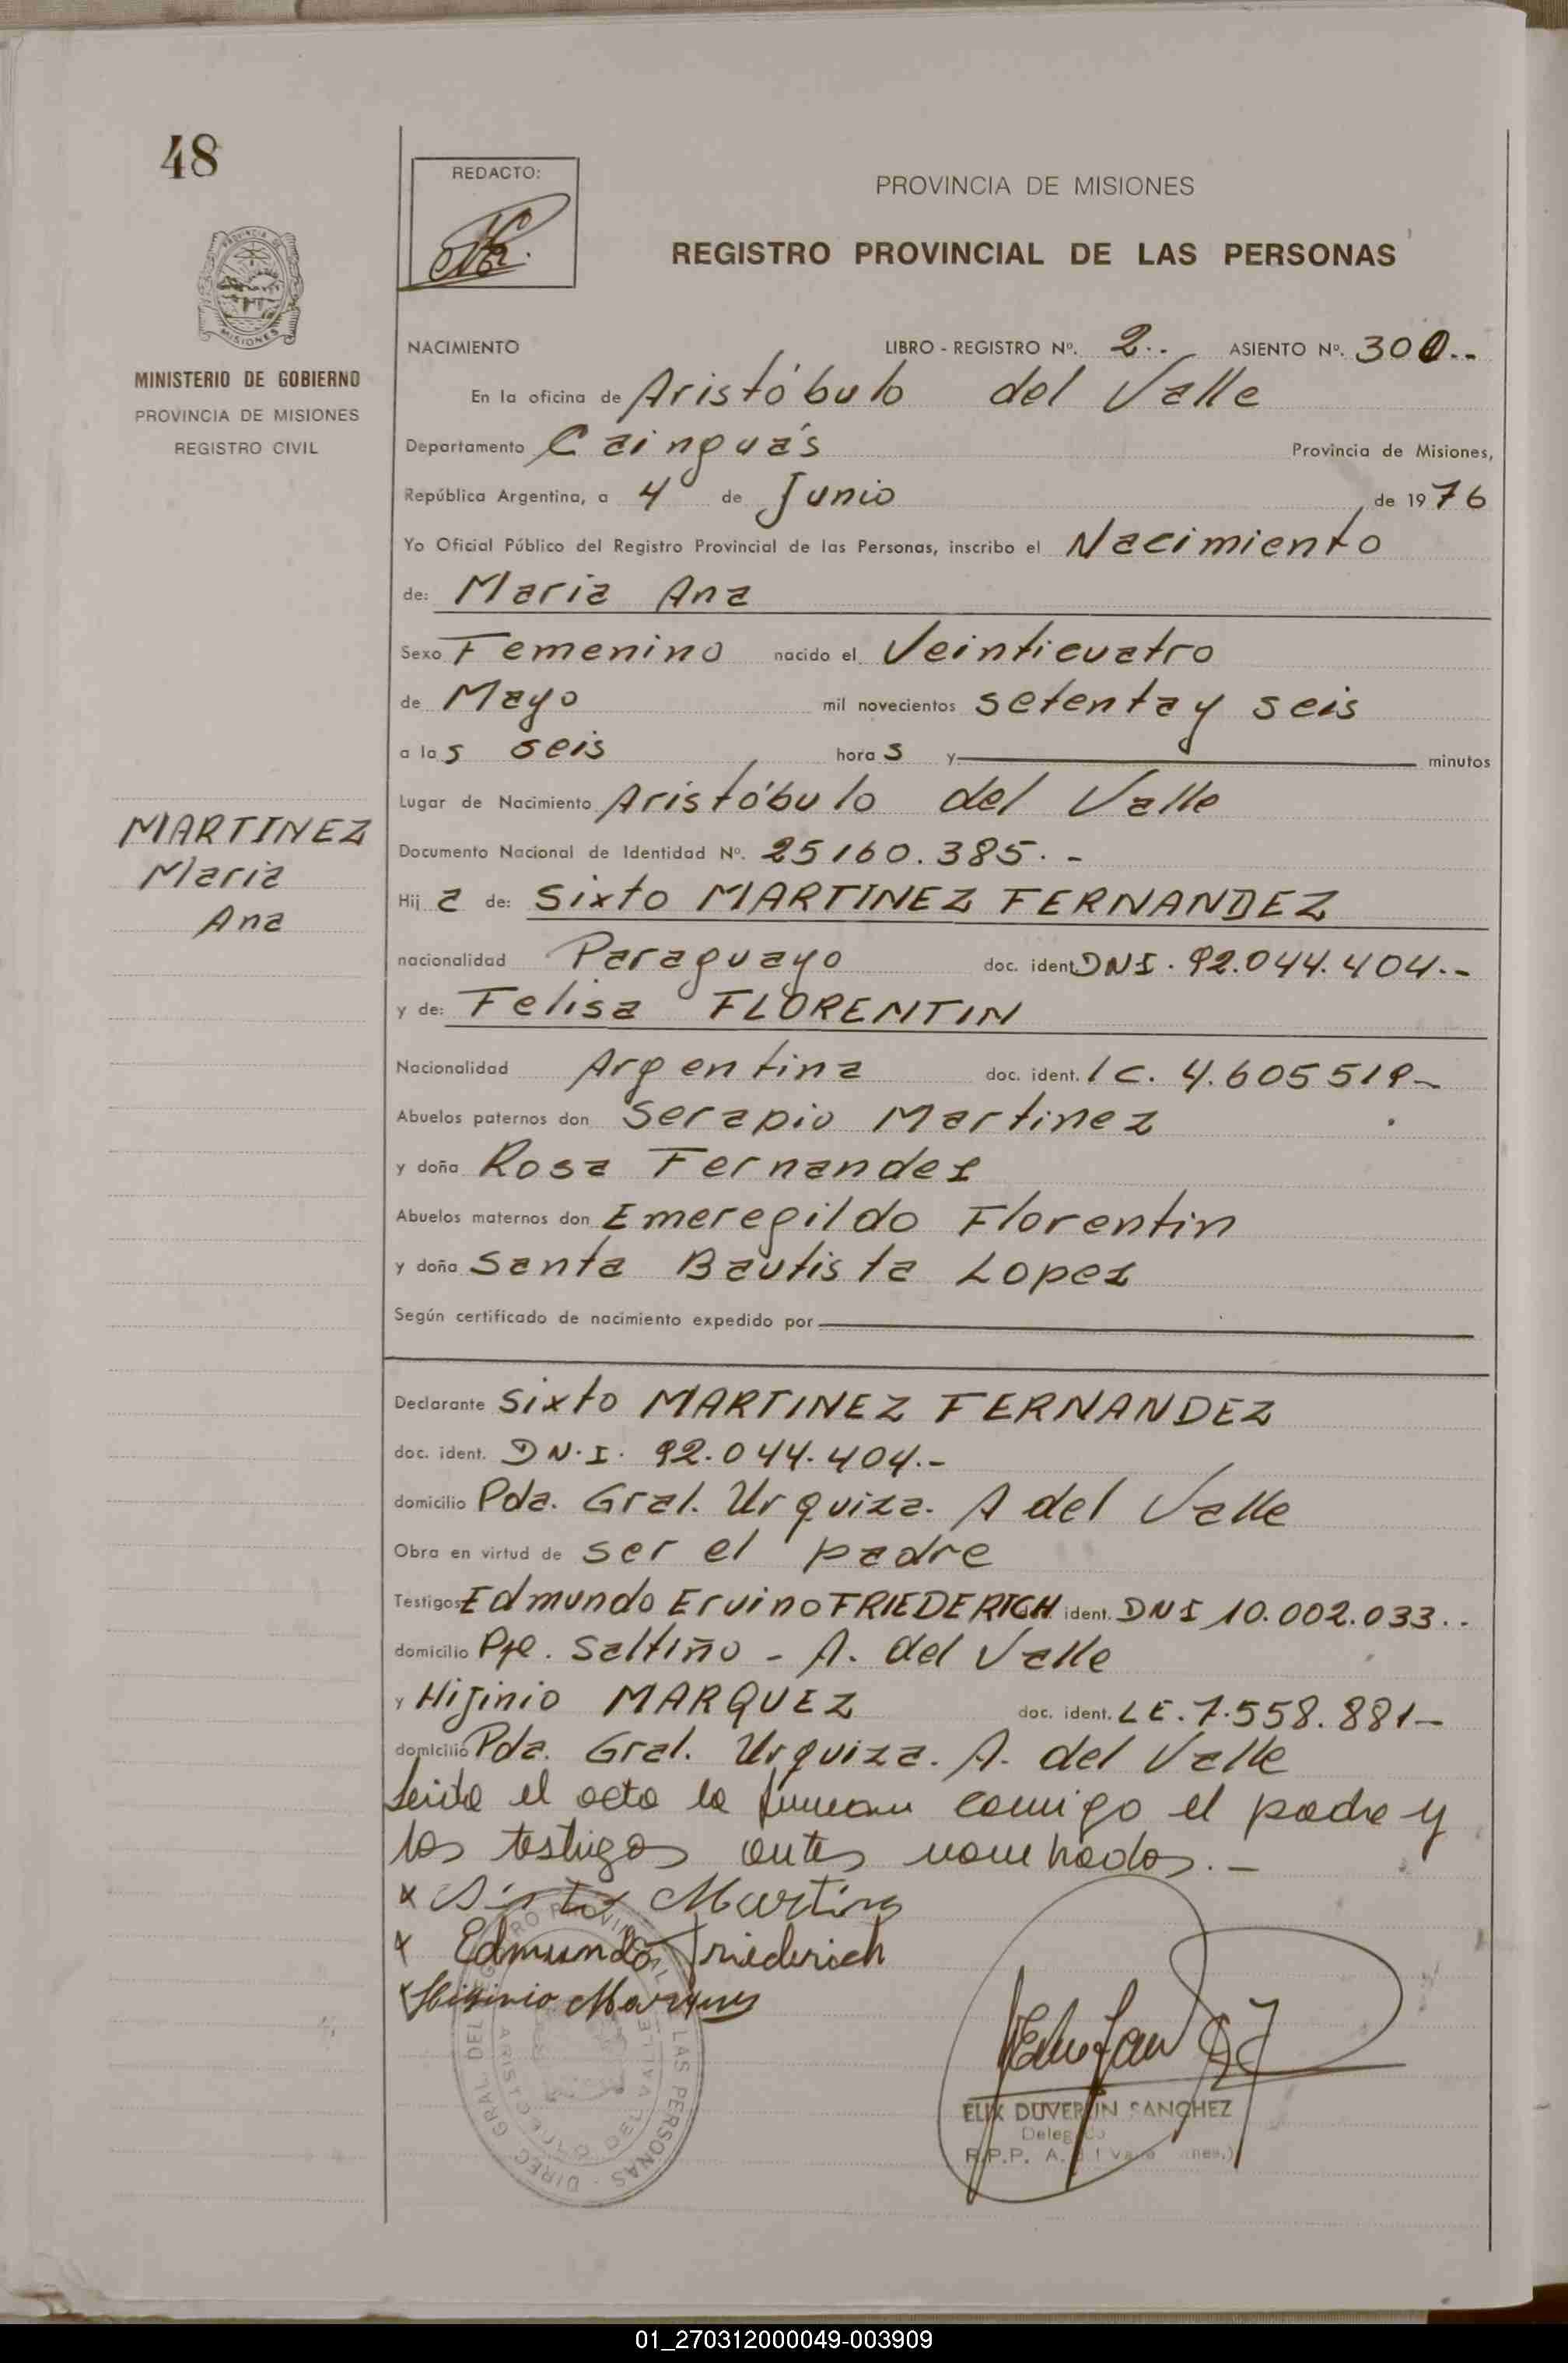 48
REDACTO:
PROVINCIA DE MISIONES
REGISTRO PROVINCIAL DE LAS PERSONAS
PROVINCIA DE
MISIONES
MINISTERIO DE GOBIERNO
PROVINCIA DE MISIONES
REGISTRO CIVIL
NACIMIENTO LIBRO - REGISTRO Nº. 2.. ASIENTO Nº. 300..
En la oficina de Aristóbulo del Valle
Departamento Cainguás Provincia de Misiones,
República Argentina, a 4 de Junio de 1976
Yo Oficial Público del Registro Provincial de las Personas, inscribo el Nacimiento
de: Maria Ana
Sexo Femenino nacido el Veinticuatro
de Mayo mil novecientos setenta y seis
a las seis horas y minutos
Lugar de Nacimiento Aristóbulo del Valle
MARTINEZ
Maria
Ana
Documento Nacional de Identidad Nº. 25160.385.-
Hija de: Sixto MARTINEZ FERNANDEZ
nacionalidad Paraguayo doc. ident. DNI. 92.044.404.-
y de: Felisa FLORENTIN
Nacionalidad Argentina doc. ident. 4.605519-
Abuelos paternos don Serapio Martinez
y doña Rosa Fernandez
Abuelos maternos don Emeregildo Florentin
y doña Santa Bautista Lopez
Según certificado de nacimiento expedido por
Declarante Sixto MARTINEZ FERNANDEZ
doc. ident. DN.I. 92.044.404.-
domicilio Pda. Gral. Urquiza. A del Valle
Obra en virtud de ser el padre
Testigos Edmundo Ervino FRIEDERICH ident. DNI 10.002.033..
domicilio Pje. Saltiño - A. del Valle
y Hijinio MARQUEZ doc. ident. LE. 7.558.881-
domicilio Pda. Gral. Urquiza. A. del Valle
Leida el acta la firman comigo el padre y
los testigos antes nombrados.-
x Sixto Martinez
x Edmundo Friederich
x Higinio Marques
ELIX DUVER IN SANCHEZ
Deleg do
R.P.P. A.
DIREC GRAL DEL REGISTRO PROVINCIAL DE LAS PERSONAS
ARISTOBULO DEL VALLE
01_270312000049-003909